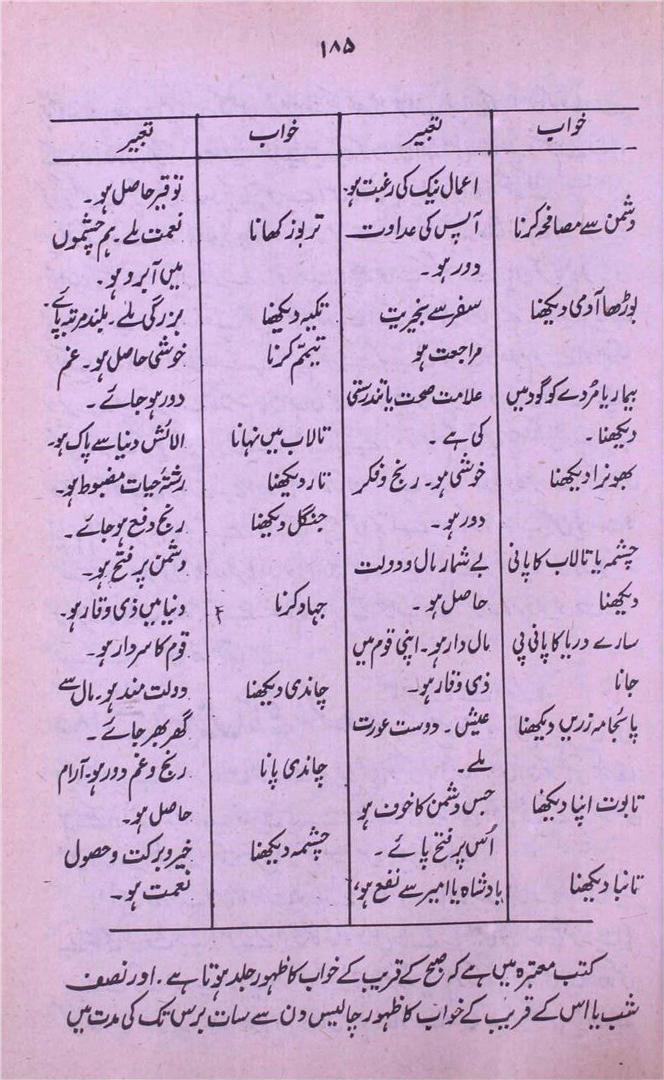 ۱۸۵
خواب
تعبیر
اعمال نیک کی رغبت ہو۔
دشمن سے مصافحہ کرنا
آپس کی عداوت
دور ہو۔
بوڑھا آدمی دیکھنا
سفر سے بخیریت
مراجعت ہو
بیمار یا مُردے کو گود میں
علامت صحت یا تندرستی
دیکھنا۔
کی ہے۔
بھونرا دیکھنا
خوشی ہو۔ رنج و فکر
دور ہو۔
چشمہ یا تالاب کا پانی
بے شمار مال و دولت
دیکھنا
حاصل ہو۔
سارے دریا کا پانی پی
مال دار ہو۔ اپنی قوم میں
جانا
ذی وقار ہو۔
پائجامہ زریں دیکھنا
عیش۔ دوست عورت
ملے۔
تابوت اپنا دیکھنا
جس دشمن کا خوف ہو
اُس پر فتح پائے۔
تانبا دیکھنا
بادشاہ یا امیر سے نفع ہو،
خواب
تعبیر
توقیر حاصل ہو۔
تربوز کھانا
نعمت ملے۔ ہم چشموں
میں آبرو ہو۔
تکیہ دیکھنا
بزرگی ملے۔ بلند مرتبہ پائے۔
تیمّم کرنا
خوشی حاصل ہو۔ غم
دور ہو جائے۔
تالاب میں نہانا
الائش دنیا سے پاک ہو۔
تار دیکھنا
رشتۂ حیات مضبوط ہو۔
جنگل دیکھنا
رنج دفع ہو جائے۔
دشمن پر فتح ہو۔
جہاد کرنا
دنیا میں ذی وقار ہو۔
قوم کا سردار ہو۔
چاندی دیکھنا
دولت مند ہو۔ مال سے
گھر بھر جائے۔
چاندی پانا
رنج و غم دور ہو۔ آرام
حاصل ہو۔
چشمہ دیکھنا
خیر و برکت و حصول
نعمت ہو۔
کتب معتبرہ میں ہے کہ صبح کے قریب کے خواب کا ظہور جلد ہوتا ہے۔ اور نصف
شب یا اس کے قریب کے خواب کا ظہور چالیس دن سے سات برس تک کی مدت میں